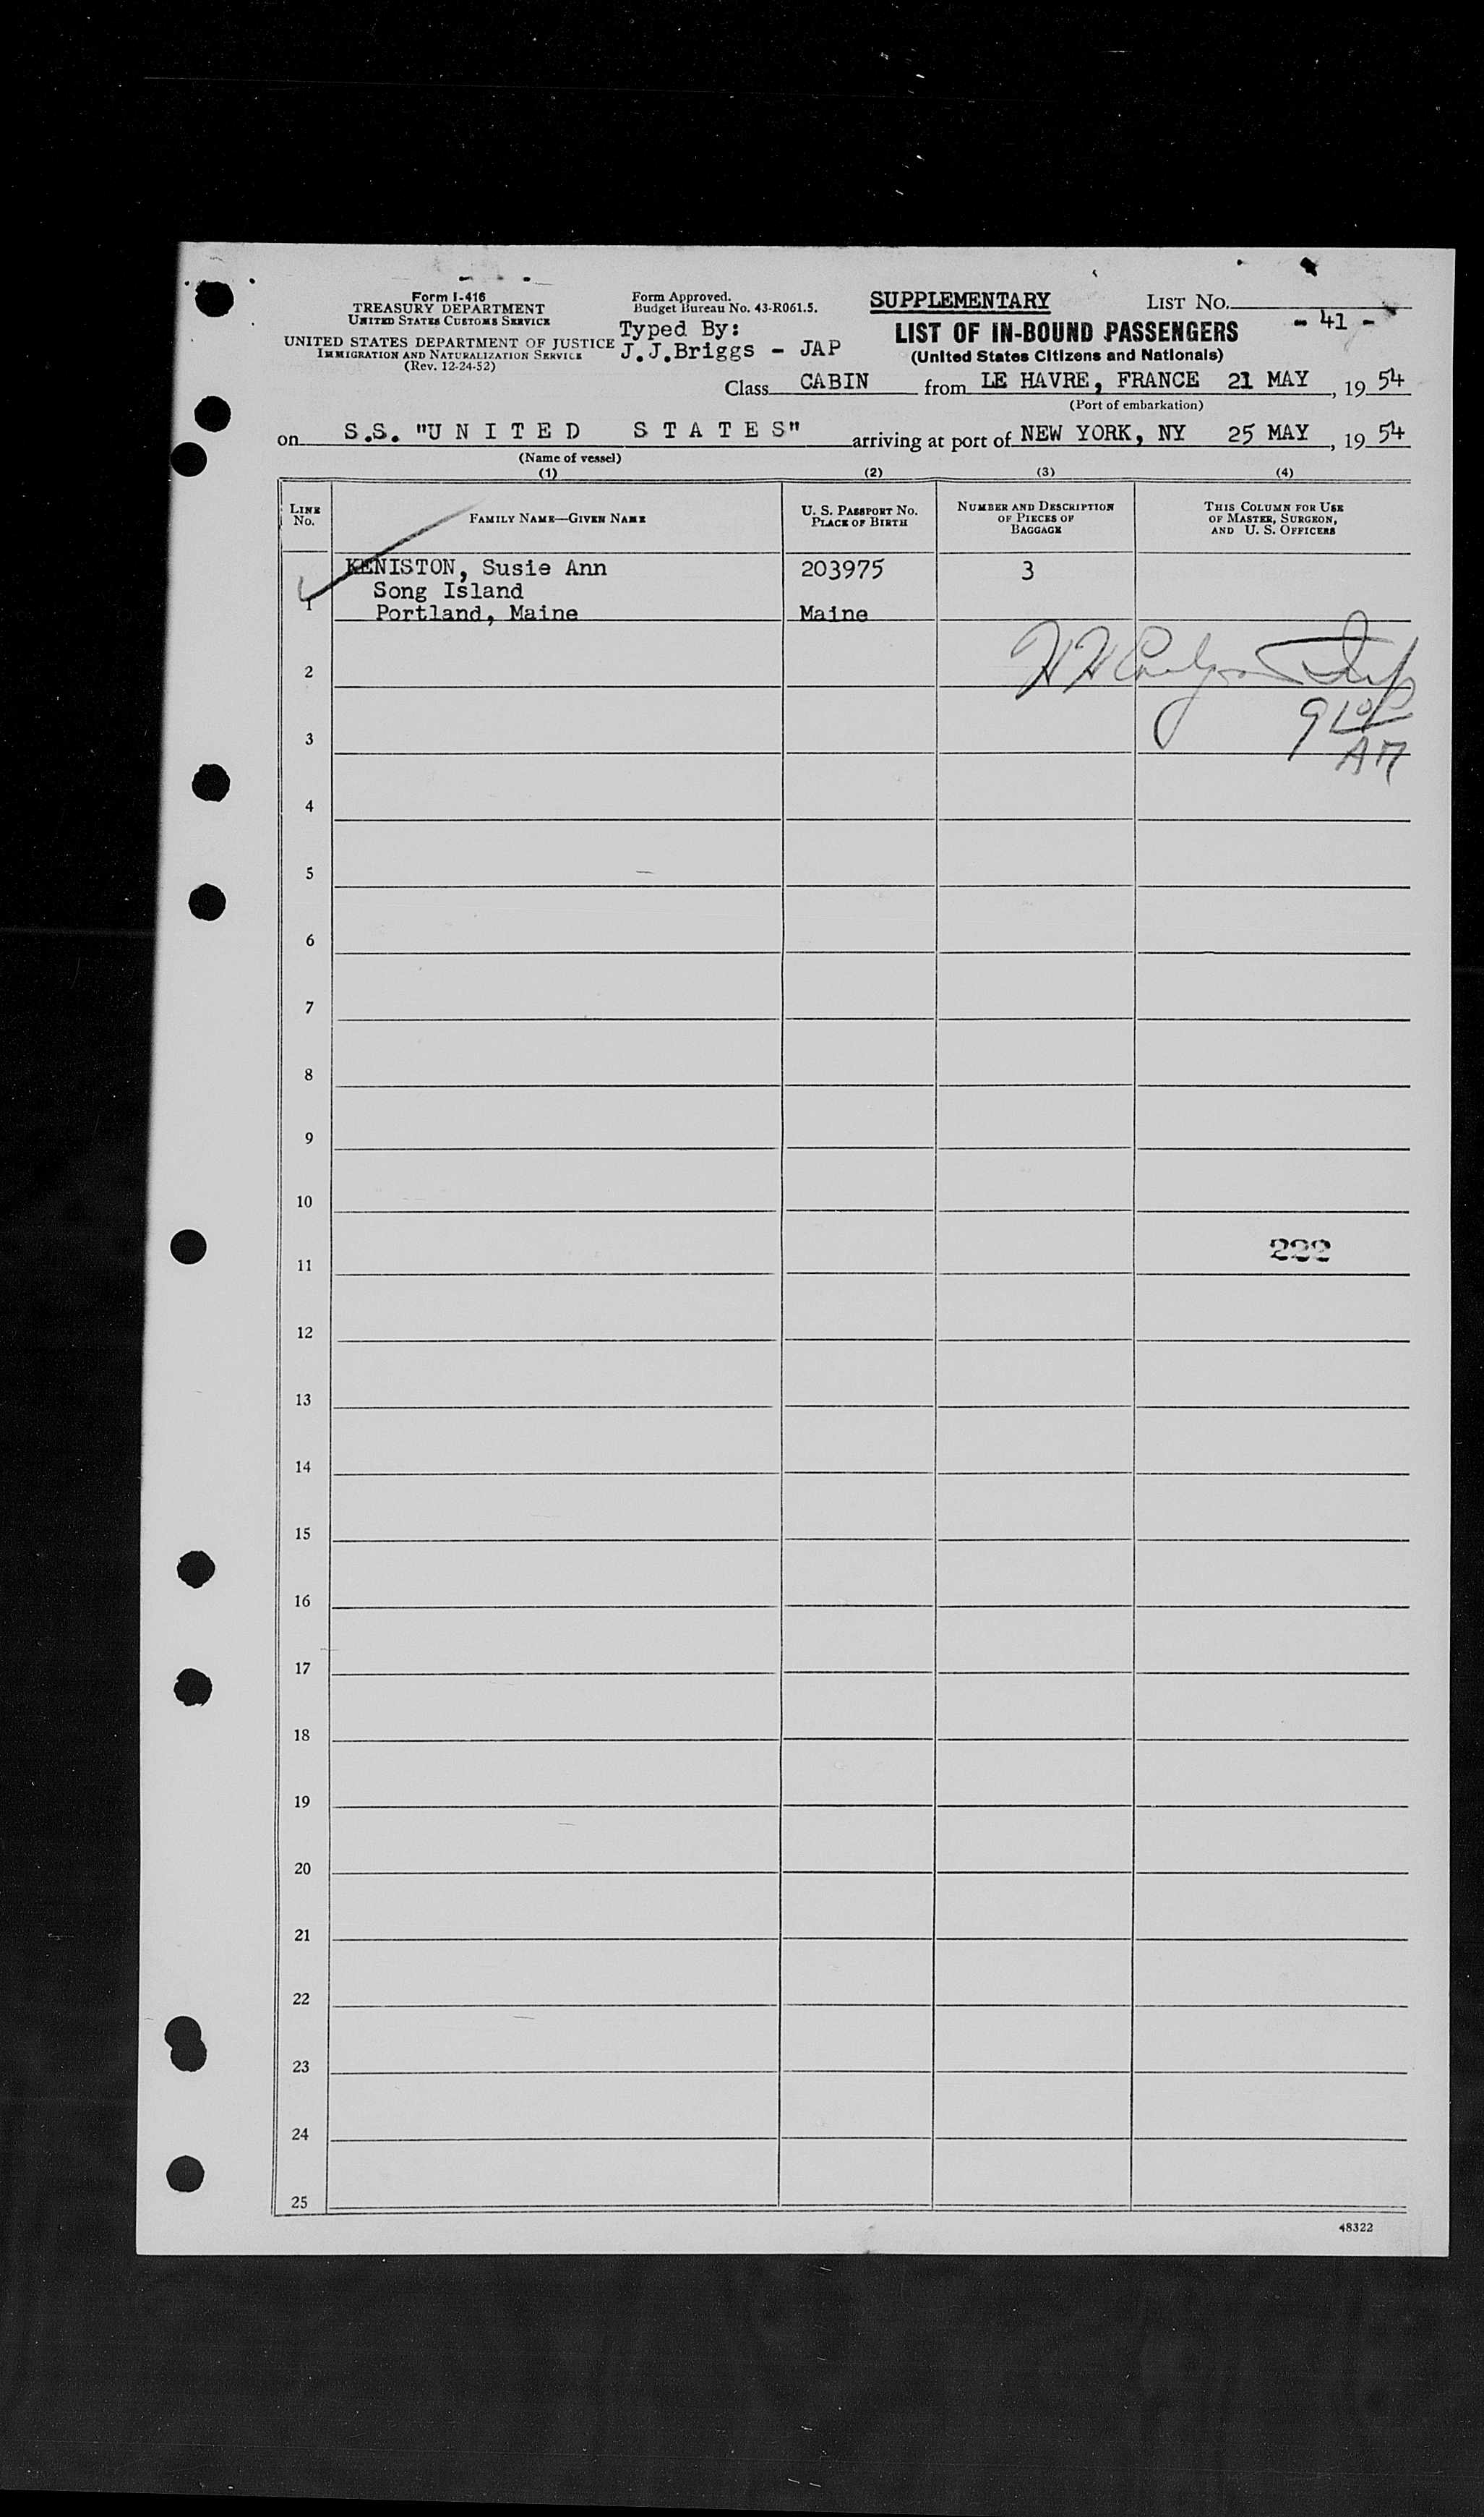 Form I-416
TREASURY DEPARTMENT
UNITED STATES CUSTOMS SERVICE
UNITED STATES DEPARTMENT OF JUSTICE
IMMIGRATION AND NATURALIZATION SERVICE
(Rev. 12-24-52)
Form Approved.
Budget Bureau No. 43-R061.5.
Typed By:
J.J.Briggs - JAP
SUPPLEMENTARY LIST No.
- 41 -
LIST OF IN-BOUND PASSENGERS
(United States Citizens and Nationals)
Class CABIN from LE HAVRE, FRANCE 21 MAY, 19 54
(Port of embarkation)
on S.S. "U N I T E D S T A T E S" arriving at port of NEW YORK, NY 25 MAY, 19 54
(Name of vessel)
(1) (2) (3) (4)
LINE No.
FAMILY NAME—GIVEN NAME
U. S. PASSPORT No.
PLACE OF BIRTH
NUMBER AND DESCRIPTION
OF PIECES OF
BAGGAGE
THIS COLUMN FOR USE
OF MASTER, SURGEON,
AND U. S. OFFICERS
KENISTON, Susie Ann 203975 3
Song Island
1 Portland, Maine Maine
2
3
AM
4
5
6
7
8
9
10
222
11
12
13
14
15
16
17
18
19
20
21
22
23
24
25
48322